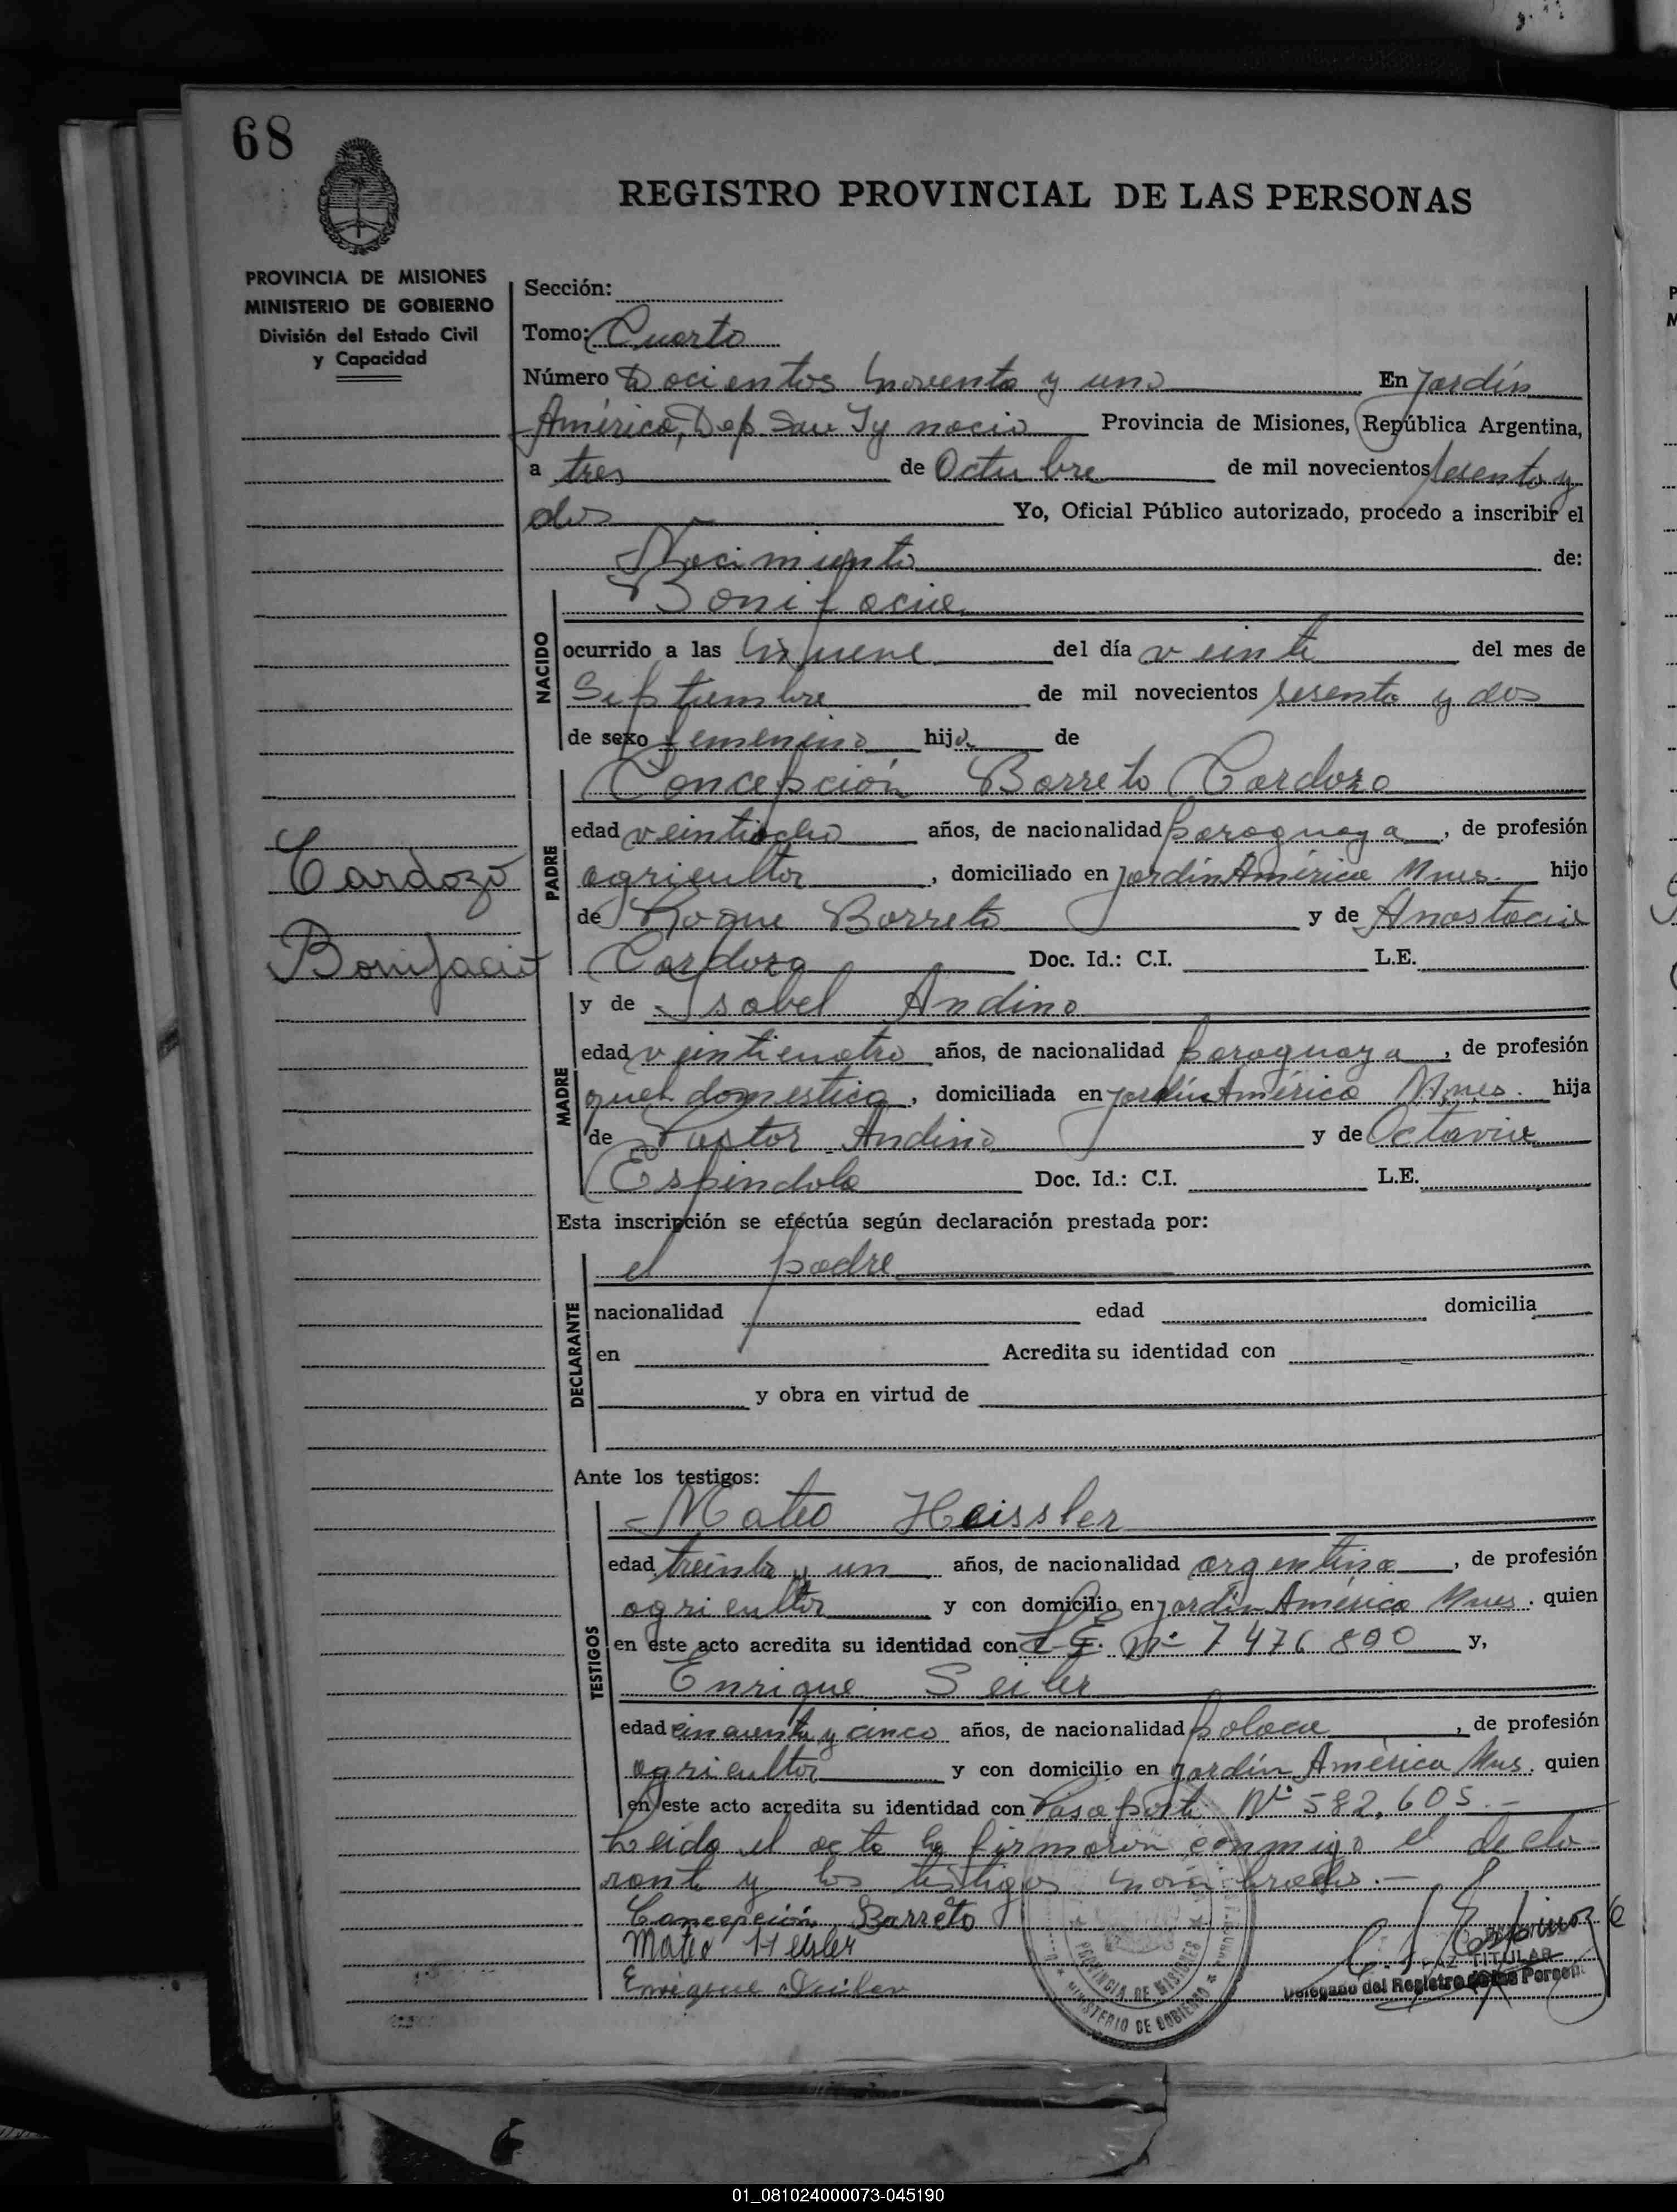 68
REGISTRO PROVINCIAL DE LAS PERSONAS
PROVINCIA DE MISIONES
MINISTERIO DE GOBIERNO
División del Estado Civil
y Capacidad
Sección:
Tomo: Cuarto
Número Docientos noventa y uno En Jardín
América, Dep. San Ygnacio Provincia de Misiones, República Argentina,
a tres de Octubre de mil novecientos sesenta y
dos Yo, Oficial Público autorizado, procedo a inscribir el
Nacimiento de:
NACIDO
Bonifacia
ocurrido a las nueve del día veinte del mes de
Septiembre de mil novecientos sesenta y dos
de sexo femenino hija de
PADRE
Concepción Barreto Cardozo
edad veintiocho años, de nacionalidad paraguaya, de profesión
agricultor, domiciliado en Jardín América Mnes. hijo
de Roque Barreto y de Anastacia
Cardozo Doc. Id.: C.I. L.E.
Cardozo
Bonifacia
MADRE
y de Isabel Andino
edad veinticuatro años, de nacionalidad paraguaya, de profesión
quel domestica, domiciliada en Jardín América Mnes. hija
de Pastor Andino y de Octavia
Espindola Doc. Id.: C.I. L.E.
Esta inscripción se efectúa según declaración prestada por:
DECLARANTE
el padre
nacionalidad edad domicilia
en Acredita su identidad con
y obra en virtud de
Ante los testigos:
TESTIGOS
Mateo Heissler
edad treinta y un años, de nacionalidad argentina, de profesión
agricultor y con domicilio en Jardín América Mnes. quien
en este acto acredita su identidad con L.E. Nº 7476800 y,
Enrique Seiler
edad cincuenta y cinco años, de nacionalidad polaca, de profesión
agricultor y con domicilio en Jardín América Mns. quien
en este acto acredita su identidad con Pasaporte Nº 582.605.-
Leída el acta la firmaron conmigo el decla
rante y los testigos nombrados.-
Concepción Barreto
Mateo Heisler
Enrique Seiler
PROVINCIA DE MISIONES
MINISTERIO DE GOBIERNO
TITULAR
Delegado del Registro de las Person
01_081024000073-045190